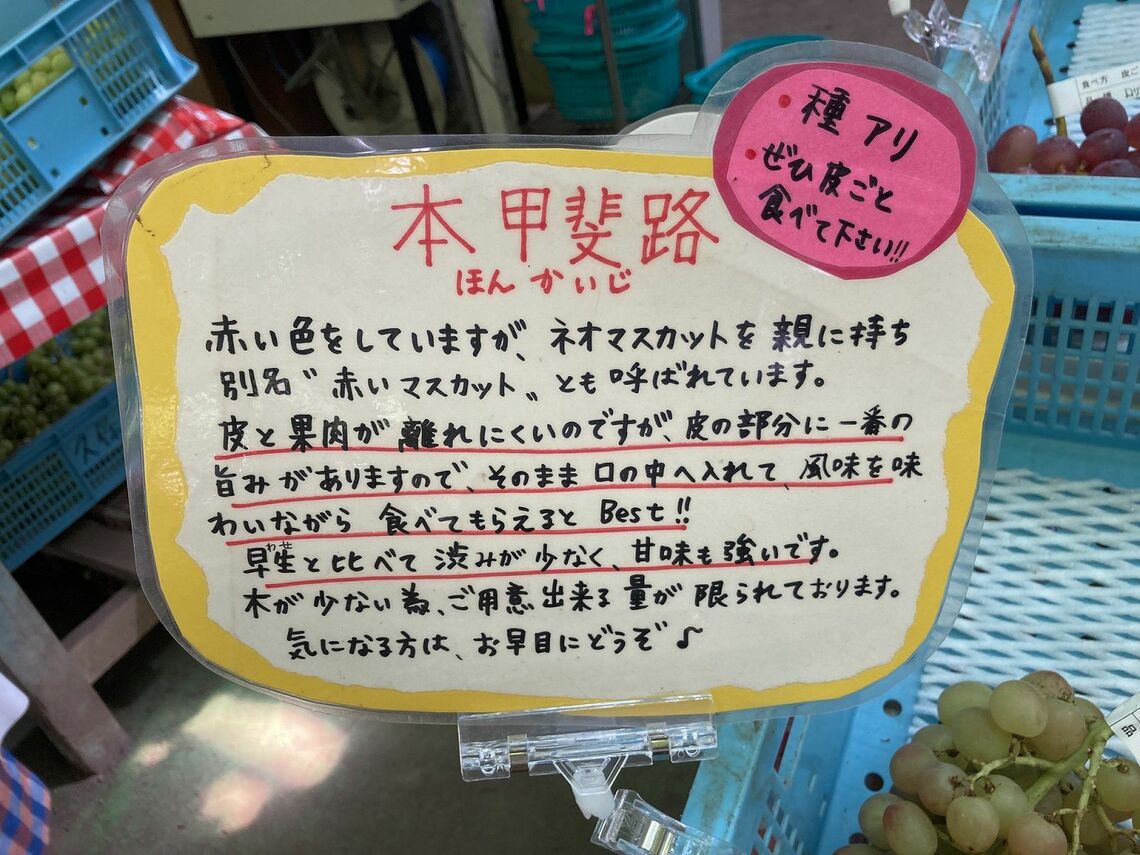 種アリ
ぜひ皮ごと
食べて下さい!!
本甲斐路
ほんかいじ
赤い色をしていますが、ネオマスカットを親に持ち
別名〝赤いマスカット〟とも呼ばれています。
皮と果肉が離れにくいのですが、皮の部分に一番の
旨みがありますので、そのまま口の中へ入れて、風味を味
わいながら食べてもらえるとBest!!
わせ
早生と比べて渋みが少なく、甘味も強いです。
木が少ない為、ご用意出来る量が限られております。
気になる方は、お早目にどうぞ♪
食べ方 皮ご
品